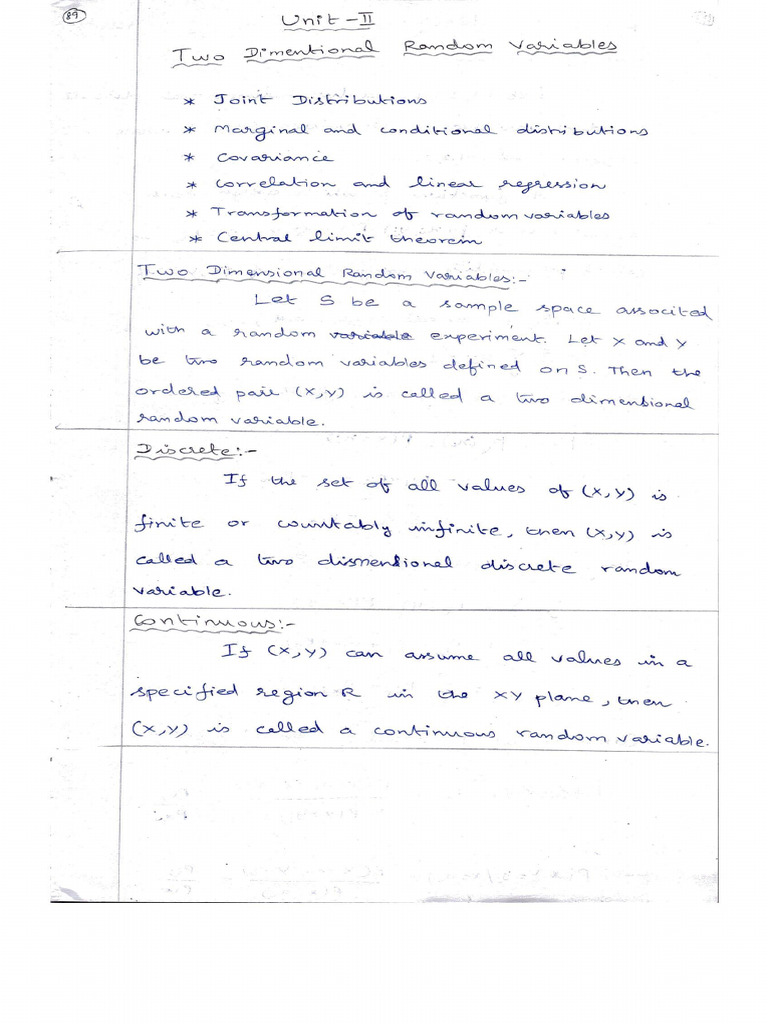 89
Unit - II
Two Dimentional Random Variables
* Joint Distributions
* Marginal and conditional distributions
* Covariance
* Correlation and linear regression
* Transformation of random variables
* Central limit theorem
Two Dimensional Random Variables:-
Let S be a sample space associted
with a random variable experiment. Let X and Y
be two random variables defined on S. Then the
ordered pair (X,Y) is called a two dimensional
random variable.
Discrete:-
If the set of all values of (X,Y) is
finite or countably infinite, then (X,Y) is
called a two dismensional discrete random
variable.
Continuous:-
If (X,Y) can assume all values in a
specified region R in the XY plane, then
(X,Y) is called a continuous random variable.